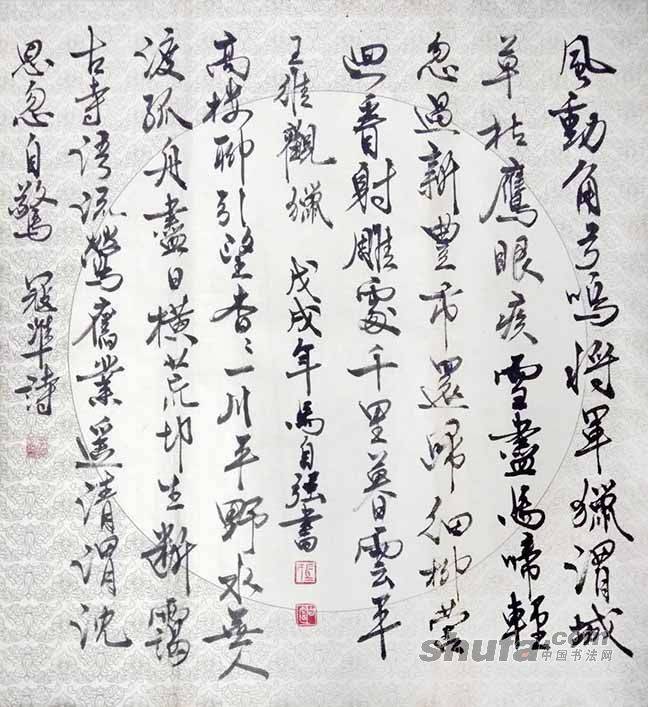 風動角弓鳴将軍獵渭城
草枯鷹眼疾雪盡馬啼輕
忽過新豐市還歸細柳營
迴看射雕處千里暮雲平
王維觀獵 戊戌年馬自強書
高樓聊引望杳〻一川平野水無人
渡孤舟盡日橫荒村生斷靄
古寺語流鶯舊業遥清渭沈
思忽自驚 寇準詩
shufa.com
中国书法网